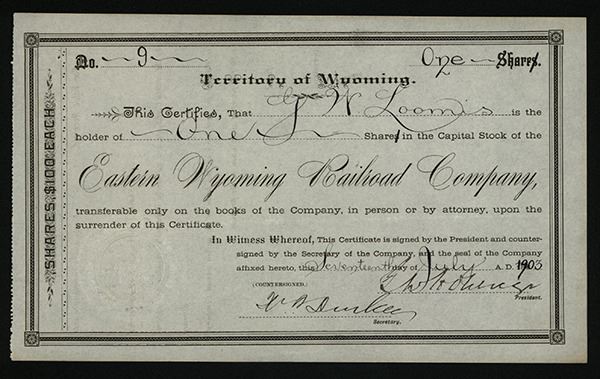 No. 9 One Shares.
Territory of Wyoming.
This Certifies, That G W Loomis is the
holder of One Shares in the Capital Stock of the
Eastern Wyoming Railroad Company,
transferable only on the books of the Company, in person or by attorney, upon the
surrender of this Certificate.
In Witness Whereof, This Certificate is signed by the President and counter-
signed by the Secretary of the Company, and the seal of the Company
affixed hereto, this Seventeenth day of July A.D. 1903
(COUNTERSIGNED.)
President.
Secretary.
SHARES $100 EACH